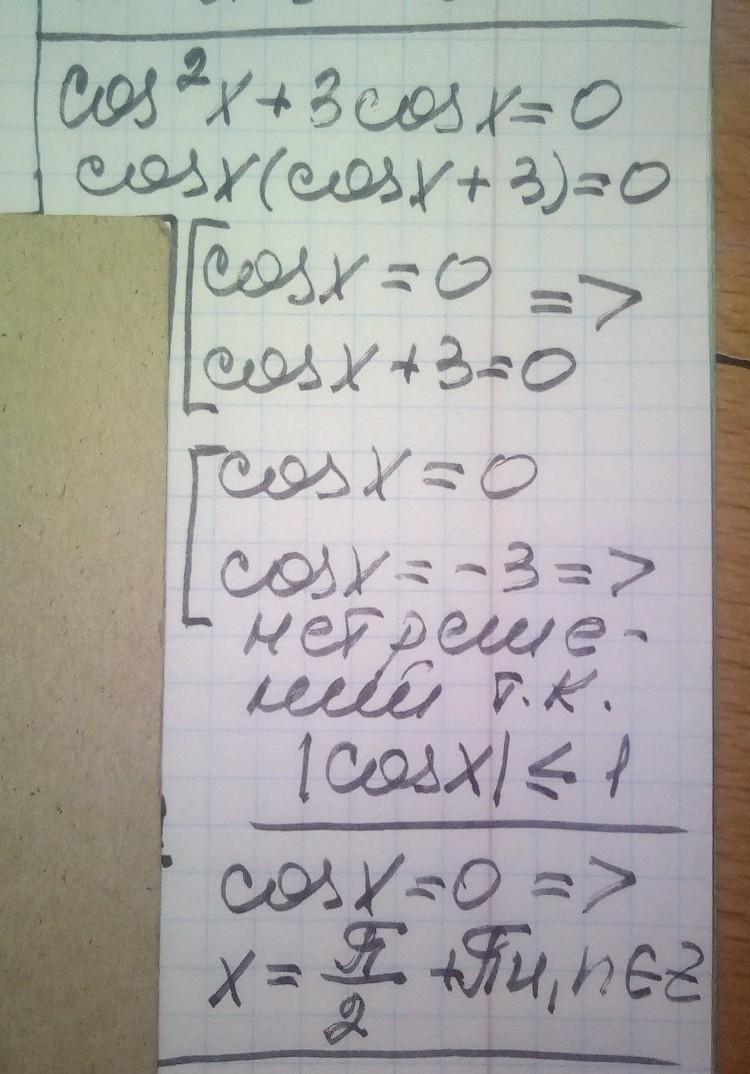 cos²x + 3cosx = 0
cosx(cosx + 3) = 0
cosx = 0 =>
cosx + 3 = 0
cosx = 0
cosx = -3 =>
нет реше-
ний т.к.
|cosx| ≤ 1
cosx = 0 =>
x = π/2 + πn, n ∈ Z